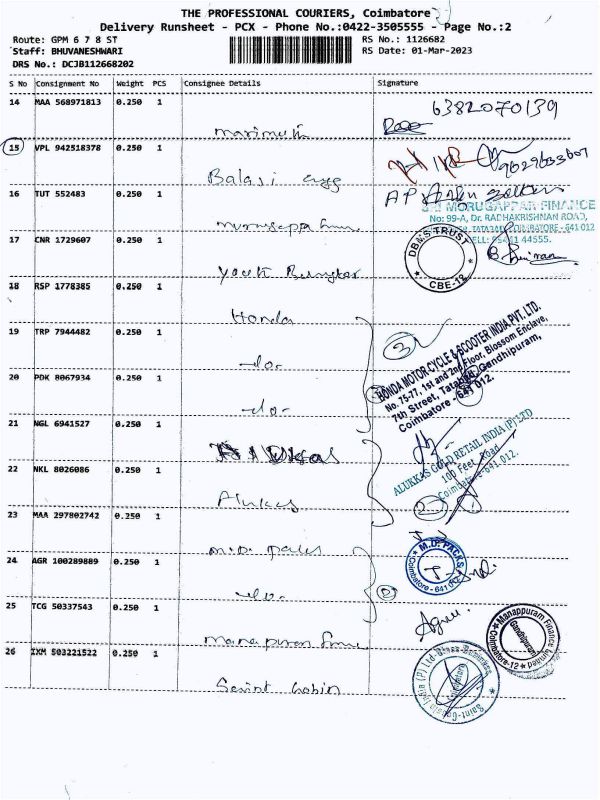 THE PROFESSIONAL COURIERS, Coimbatore
Delivery Runsheet - PCX - Phone No.:0422-3505555 - Page No.:2
Route: GPM 6 7 8 ST
RS No.: 1126682
Staff: BHUVANESHWARI
RS Date: 01-Mar-2023
DRS No.: DCJB112668202
S No Consignment No Weight PCS Consignee Details Signature
14 MAA 568971813 0.250 1
6382070139
15 VPL 942518378 0.250 1
Balaji
16 TUT 552483 0.250 1
MURUGAPPAR FINANCE
No: 99-A, Dr. RADHAKRISHNAN ROAD,
COIMBATORE - 641 012
44555.
17 CNR 1729607 0.250 1
DBMS TRUST
CBE-12
18 RSP 1778385 0.250 1
Honda
3
19 TRP 7944482 0.250 1
-do-
HONDA MOTOR CYCLE & SCOOTER INDIA PVT. LTD.
No. 75-77, 1st and 2nd Floor, Blossom Enclave,
7th Street, Tatabad, Gandhipuram,
Coimbatore - 641 012.
20 PDK 8067934 0.250 1
-do-
21 NGL 6941527 0.250 1
ALUKKAS GOLD RETAIL INDIA (P) LTD
100 Feet Road
Coimbatore-641 012.
22 NKL 8026086 0.250 1
Alukas
2
23 MAA 297802742 0.250 1
M.D. Packs
M.D. PACKS
Coimbatore - 641 012
24 AGR 100289889 0.250 1
-do-
2
25 TCG 50337543 0.250 1
Manappuram Finance Limited
Gandhipuram
Coimbatore-12
26 IXM 503221522 0.250 1
Saint Gobin